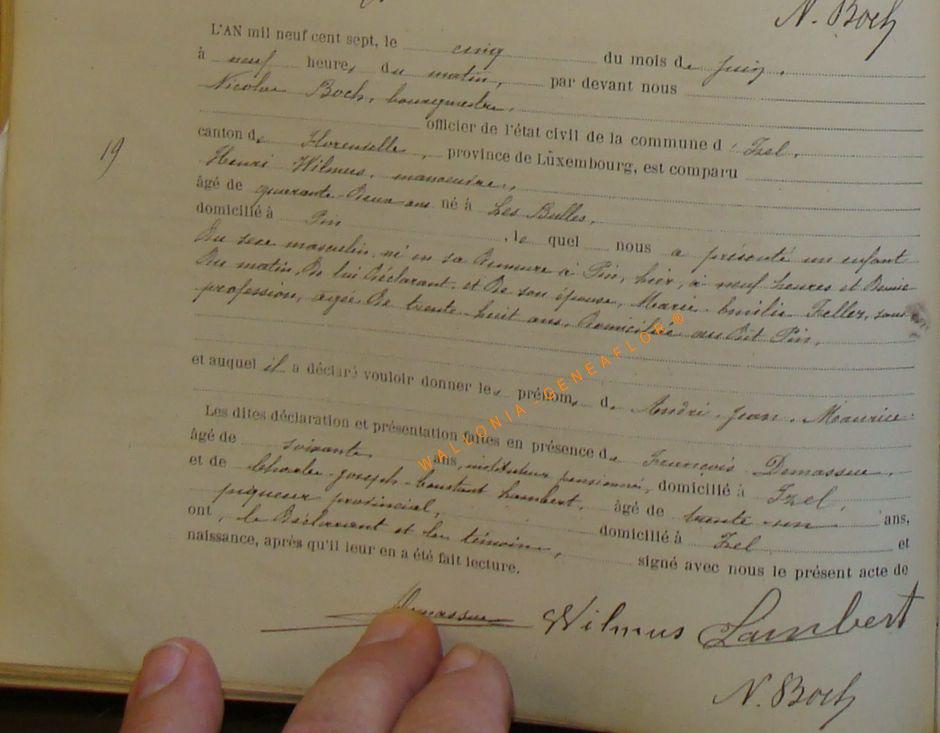 N. Boch
L'AN mil neuf cent sept, le cinq du mois de juin.
à neuf heures du matin, par devant nous
Nicolas Boch, bourgmestre,
officier de l'état civil de la commune d'Izel,
canton de Florenville, province de Luxembourg, est comparu
19
Henri Wilmus, manoeuvre,
âgé de quarante deux ans né à Les Bulles,
domicilié à Pin, le quel nous a présenté un enfant
du sexe masculin, né en sa demeure à Pin, hier, à neuf heures et demie
du matin, de lui déclarant, et de son épouse, Marie Emilie Feller, sans
profession, agée de trente huit ans, domiciliée au dit Pin,
et auquel il a déclaré vouloir donner les prénoms de André Jean Maurice
Les dites déclaration et présentation faites en présence de François Demasson
âgé de soixante ans, instituteur pensionné, domicilié à Izel,
et de Charles Joseph Constant Lambert, âgé de trente un ans,
piqueur provincial, domicilié à Izel et
ont, le déclarant et les témoins, signé avec nous le présent acte de
naissance, après qu'il leur en a été fait lecture.
Wilmus Lambert
N. Boch
WALLONIA-GENEAFLOR®